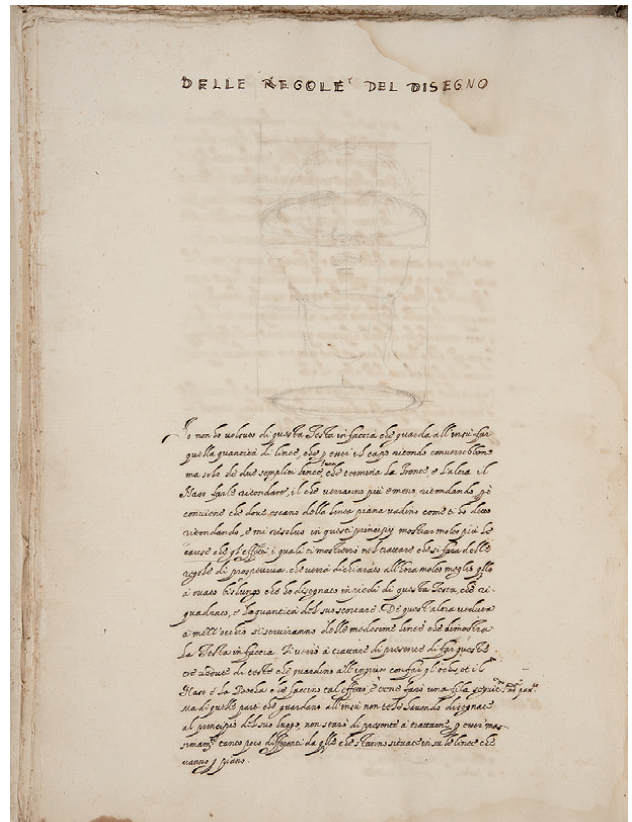 DELLE REGOLE DEL DISEGNO
Io non ho voluto di questa Testa in faccia che guarda all'insù far
quella quantità di linee, che p esser il capo ritondo converrebbono
ma solo le due semplici linee, che termina la fronte, e l'altra il
Naso farle ritondare, il che verranno più e meno ritondando, pò
conviene che dove escano della linea piana vadino come ti ho detto
ritondando, e mi risolvo in questi principij mostrar molto più le
cause che gl'effetti, i quali ti mostrerò nel trattare che si farà delle
regole di prospettiva, che verrà dichiarato all'hora molto meglio qllo
ò ovato bislungo che ho disegnato in piedi di questa Testa, che ri-
quadrato, e la quantità del suo scortare. De quest'altra veduta
à mezz'occhio si serviranno delle medesime linee che dimostra
la Testa in faccia. Ti verrò à trattare di presente di far queste
tre vedute di teste che guardino all'ingiun con far gl'ochi, et il
Naso e la Bocha che faccino tal effetto, e tene farò una fila
ma di quelle parti che guardano all'insù non tele havendo disegnate
al principio del suo luogo, non starò di presente à trattarne, p esser mas-
simamte tanto poco differenti da qlle che stanno situate in su le linee che
vanno p piano.